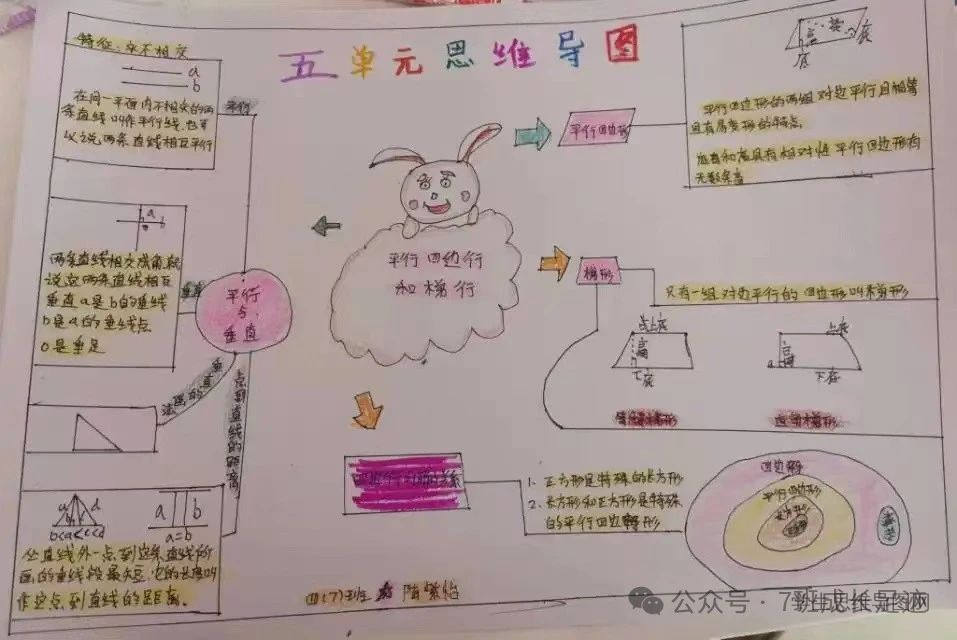 五单元思维导图
特征:永不相交
a
b
在同一平面内不相交的两
条直线叫作平行线,也可
以说两条直线相互平行
平行
a
b
两条直线相交成直角,就
说这两条直线相互
垂直 a是b的垂线
b是a的垂线 点
O是垂足
垂直
平行
与
垂直
点到直线的距离
a=b
从直线外一点到这条直线所
画的垂线段最短,它的长度叫
作这点到直线的距离。
平行四边行
和梯行
平行四边形
高
底
高
底
平行四边形的两组对边平行且相等
且有易变形的特点。
底和高具有相对性 平行四边形有
无数条高
梯形
只有一组对边平行的四边形叫梯形
上底
高
下底
上底
高
下底
直角梯形
1. 正方形是特殊的长方形
2. 长方形和正方形是特殊
的平行四边形
四边形
平行四边形
长方形
四(7)班
公众号·7班成长足迹